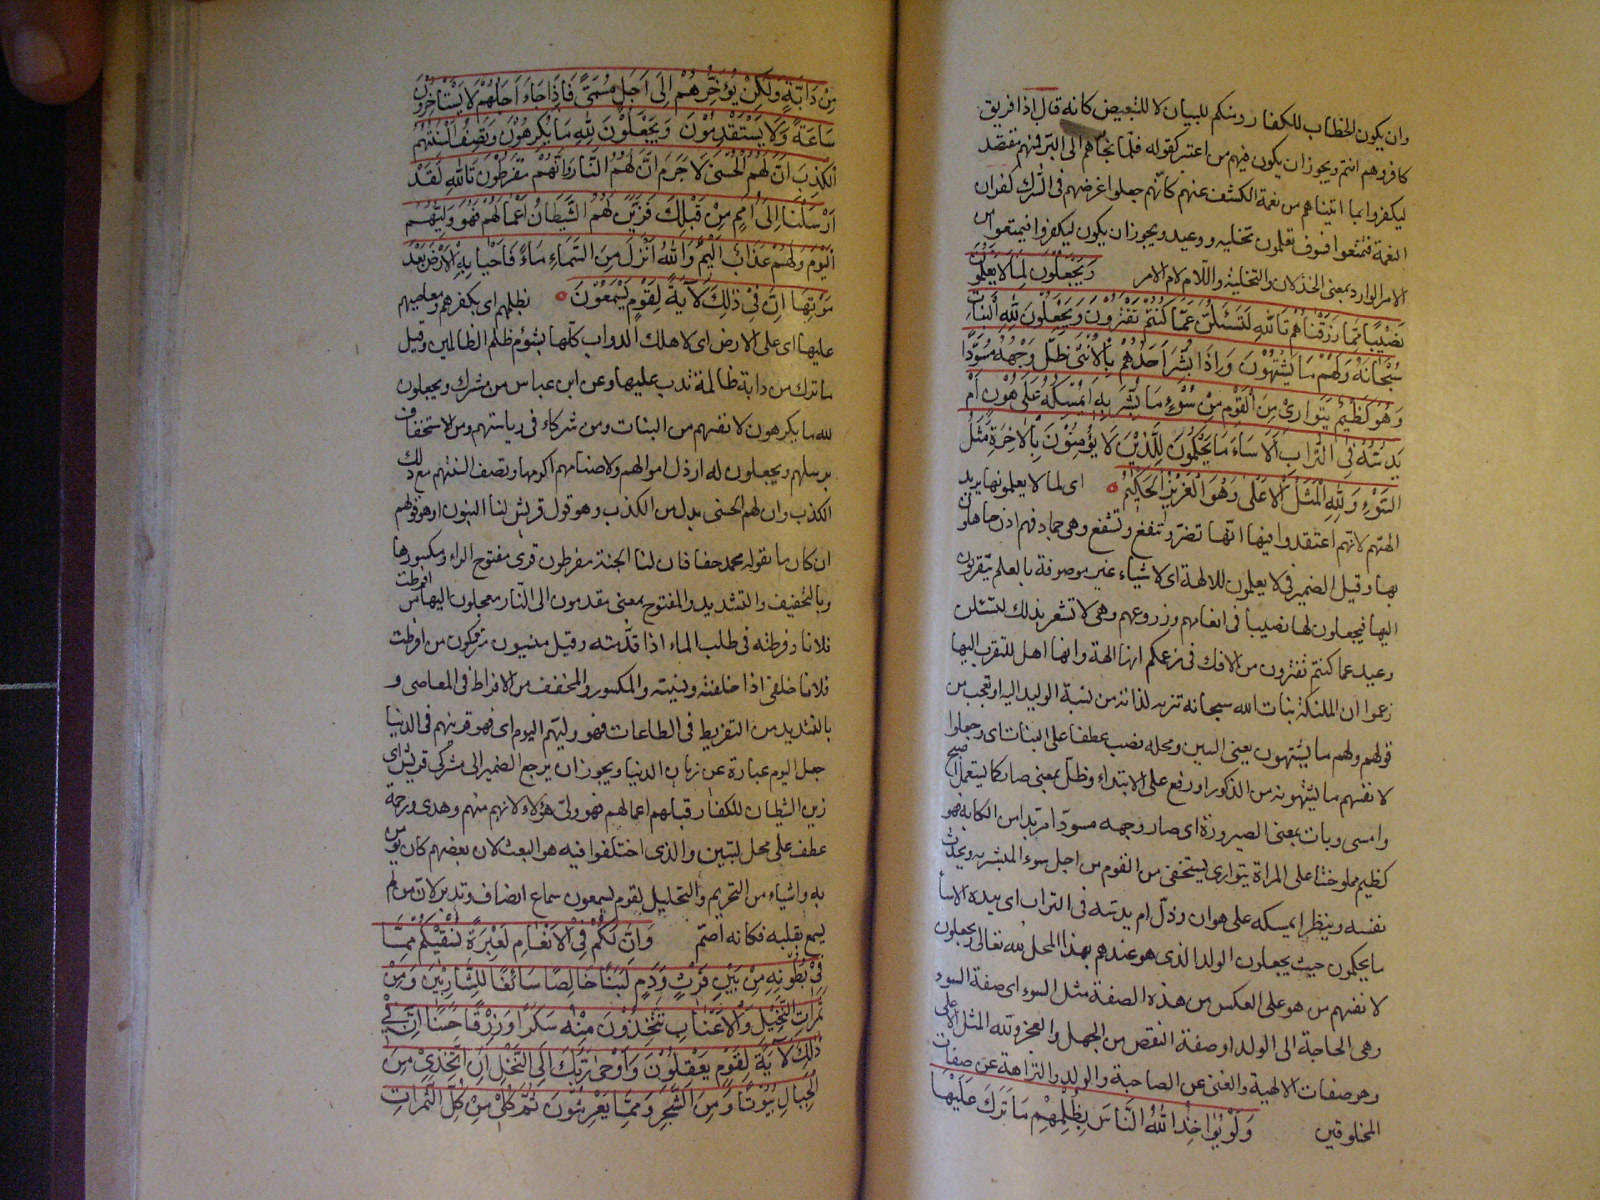 وان يكون الخطاب للكفار ومنكم للبيان لا للتبعيض كانه قال اذا فريق
كافر وهم انتم ويجوز ان يكون فيهم من اعتبر لقوله فلما نجاهم الى البر فمنهم مقتصد
ليكفروا بما اتيناهم من نعمة الكشف عنهم كانهم جعلوا غرضهم فى الشرك كفران
النعمة فتمتعوا فسوف تعلمون تخلية ووعيد ويجوز ان يكون ليكفروا فيمتعوا من
الامر الوارد بمعنى الخذلان والتخلية واللام لام الامر وَيَجْعَلُونَ لِمَا لَا يَعْلَمُونَ
نَصِيبًا مِمَّا رَزَقْنَاهُمْ تَاللهِ لَتُسْئَلُنَّ عَمَّا كُنْتُمْ تَفْتَرُونَ وَيَجْعَلُونَ لِلهِ الْبَنَاتِ
سُبْحَانَهُ وَلَهُمْ مَا يَشْتَهُونَ وَاِذَا بُشِّرَ اَحَدُهُمْ بِالْاُنْثَى ظَلَّ وَجْهُهُ مُسْوَدًّا
وَهُوَ كَظِيمٌ يَتَوَارَى مِنَ الْقَوْمِ مِنْ سُوْءِ مَا بُشِّرَ بِهِ اَيُمْسِكُهُ عَلَى هُونٍ اَمْ
يَدُسُّهُ فِى التُّرَابِ اَلَا سَاءَ مَا يَحْكُمُونَ لِلَّذِينَ لَا يُؤْمِنُونَ بِالْاٰخِرَةِ مَثَلُ
السَّوْءِ وَلِلهِ الْمَثَلُ الْاَعْلَى وَهُوَ الْعَزِيزُ الْحَكِيمُ اى لما لا يعلمونها يريد
الهتهم لانهم اعتقدوا فيها انها تضر وتنفع وتشفع وهى جماد فهم اذن جاهلون
بها وقيل الضمير فى لا يعلمون للالهة اى لاشياء غير موصوفة بالعلم يتقربون
اليها فيجعلون لها نصيبا فى انعامهم وزروعهم وهى لا تشعر بذلك لتسئلن
وعيد عما كنتم تفترون من الافك فى زعمكم انها الهة وانها اهل للتقرب اليها
زعموا ان الملئكة بنات الله سبحانه تنزيه لذاته من نسبة الوليد اليه او تعجب من
قولهم ولهم ما يشتهون يعنى البنين ومحله نصب عطفا على البنات اى وجعلوا
لانفسهم ما يشتهونه من الذكور او رفع على الابتداء وظل بمعنى صار كما يستعمل اصبح
وامسى وبات بمعنى الصيرورة اى صار وجهه مسودا مربدا من الكابة وهو
كظيم مملو حنقا على المراة يتوارى يستخفى من القوم من اجل سوء المبشر به ويحدث
نفسه وينظر ايمسكه على هوان وذل ام يدسه فى التراب اى يئده الا ساء
ما يحكمون حيث يجعلون الولد الذى هو عندهم بهذا المحل لله تعالى ويجعلون
لانفسهم من هو على العكس من هذه الصفة مثل السوء اى صفة السوء
وهى الحاجة الى الولد او صفة النقص من الجهل والعجز ولله المثل الاعلى
وهو صفات الالهية والغنى عن الصاحبة والولد والنزاهة عن صفات
المخلوقين وَلَوْ يُؤَاخِذُ اللهُ النَّاسَ بِظُلْمِهِمْ مَا تَرَكَ عَلَيْهَا
مِنْ دَابَّةٍ وَلَكِنْ يُؤَخِّرُهُمْ اِلَى اَجَلٍ مُسَمًّى فَاِذَا جَاءَ اَجَلُهُمْ لَا يَسْتَاْخِرُونَ
سَاعَةً وَلَا يَسْتَقْدِمُونَ وَيَجْعَلُونَ لِلهِ مَا يَكْرَهُونَ وَتَصِفُ اَلْسِنَتُهُمُ
الْكَذِبَ اَنَّ لَهُمُ الْحُسْنَى لَا جَرَمَ اَنَّ لَهُمُ النَّارَ وَاَنَّهُمْ مُفْرَطُونَ تَاللهِ لَقَدْ
اَرْسَلْنَا اِلَى اُمَمٍ مِنْ قَبْلِكَ فَزَيَّنَ لَهُمُ الشَّيْطَانُ اَعْمَالَهُمْ فَهُوَ وَلِيُّهُمُ
الْيَوْمَ وَلَهُمْ عَذَابٌ اَلِيمٌ وَاللهُ اَنْزَلَ مِنَ السَّمَاءِ مَاءً فَاَحْيَا بِهِ الْاَرْضَ بَعْدَ
مَوْتِهَا اِنَّ فِى ذٰلِكَ لَاٰيَةً لِقَوْمٍ يَسْمَعُونَ بظلمهم اى بكفرهم ومعاصيهم
عليها اى على الارض اى لاهلك الدواب كلها بشؤم ظلم الظالمين وقيل
ما ترك من دابة ظالمة تدب عليها وعن ابن عباس من مشرك ويجعلون
لله ما يكرهون لانفسهم من البنات ومن شركاء فى رياستهم ومن الاستخفاف
برسلهم ويجعلون له ارذل اموالهم ولاصنامهم اكرمها وتصف السنتهم مع ذلك
الكذب وان لهم الحسنى بدل من الكذب وهو قول قريش لنا البنون او هو قولهم
ان كان ما يقوله محمد حقا فان لنا الجنة مفرطون قرى مفتوح الراء ومكسورها
وبالتخفيف والتشديد والمفتوح بمعنى مقدمون الى النار معجلون اليها من افرطت
فلانا وفرطته فى طلب الماء اذا قدمته وقيل منسيون متروكون من افرطت
فلانا خلفى اذا خلفته ونسيته والمكسور والمخفف من الافراط فى المعاصى و
بالتشديد من التفريط فى الطاعات فهو وليهم اليوم اى فهو قرينهم فى الدنيا
جعل اليوم عبارة عن زمان الدنيا ويجوز ان يرجع الضمير الى مشركى قريش اى
زين الشيطان للكفار قبلهم اعمالهم فهو ولى هؤلاء لانهم منهم وهدى ورحمة
عطف على محل لتبين والذى اختلفوا فيه هو البعث لان بعضهم كان يؤمن
به واشياء من التحريم والتحليل لقوم يسمعون سماع انصاف وتدبر لان من لم
يسمع بقلبه فكانه اصم وَاِنَّ لَكُمْ فِى الْاَنْعَامِ لَعِبْرَةً نُسْقِيكُمْ مِمَّا
فِى بُطُونِهِ مِنْ بَيْنِ فَرْثٍ وَدَمٍ لَبَنًا خَالِصًا سَائِغًا لِلشَّارِبِينَ وَمِنْ
ثَمَرَاتِ النَّخِيلِ وَالْاَعْنَابِ تَتَّخِذُونَ مِنْهُ سَكَرًا وَرِزْقًا حَسَنًا اِنَّ فِى
ذٰلِكَ لَاٰيَةً لِقَوْمٍ يَعْقِلُونَ وَاَوْحَى رَبُّكَ اِلَى النَّحْلِ اَنِ اتَّخِذِى مِنَ
الْجِبَالِ بُيُوتًا وَمِنَ الشَّجَرِ وَمِمَّا يَعْرِشُونَ ثُمَّ كُلِى مِنْ كُلِّ الثَّمَرَاتِ